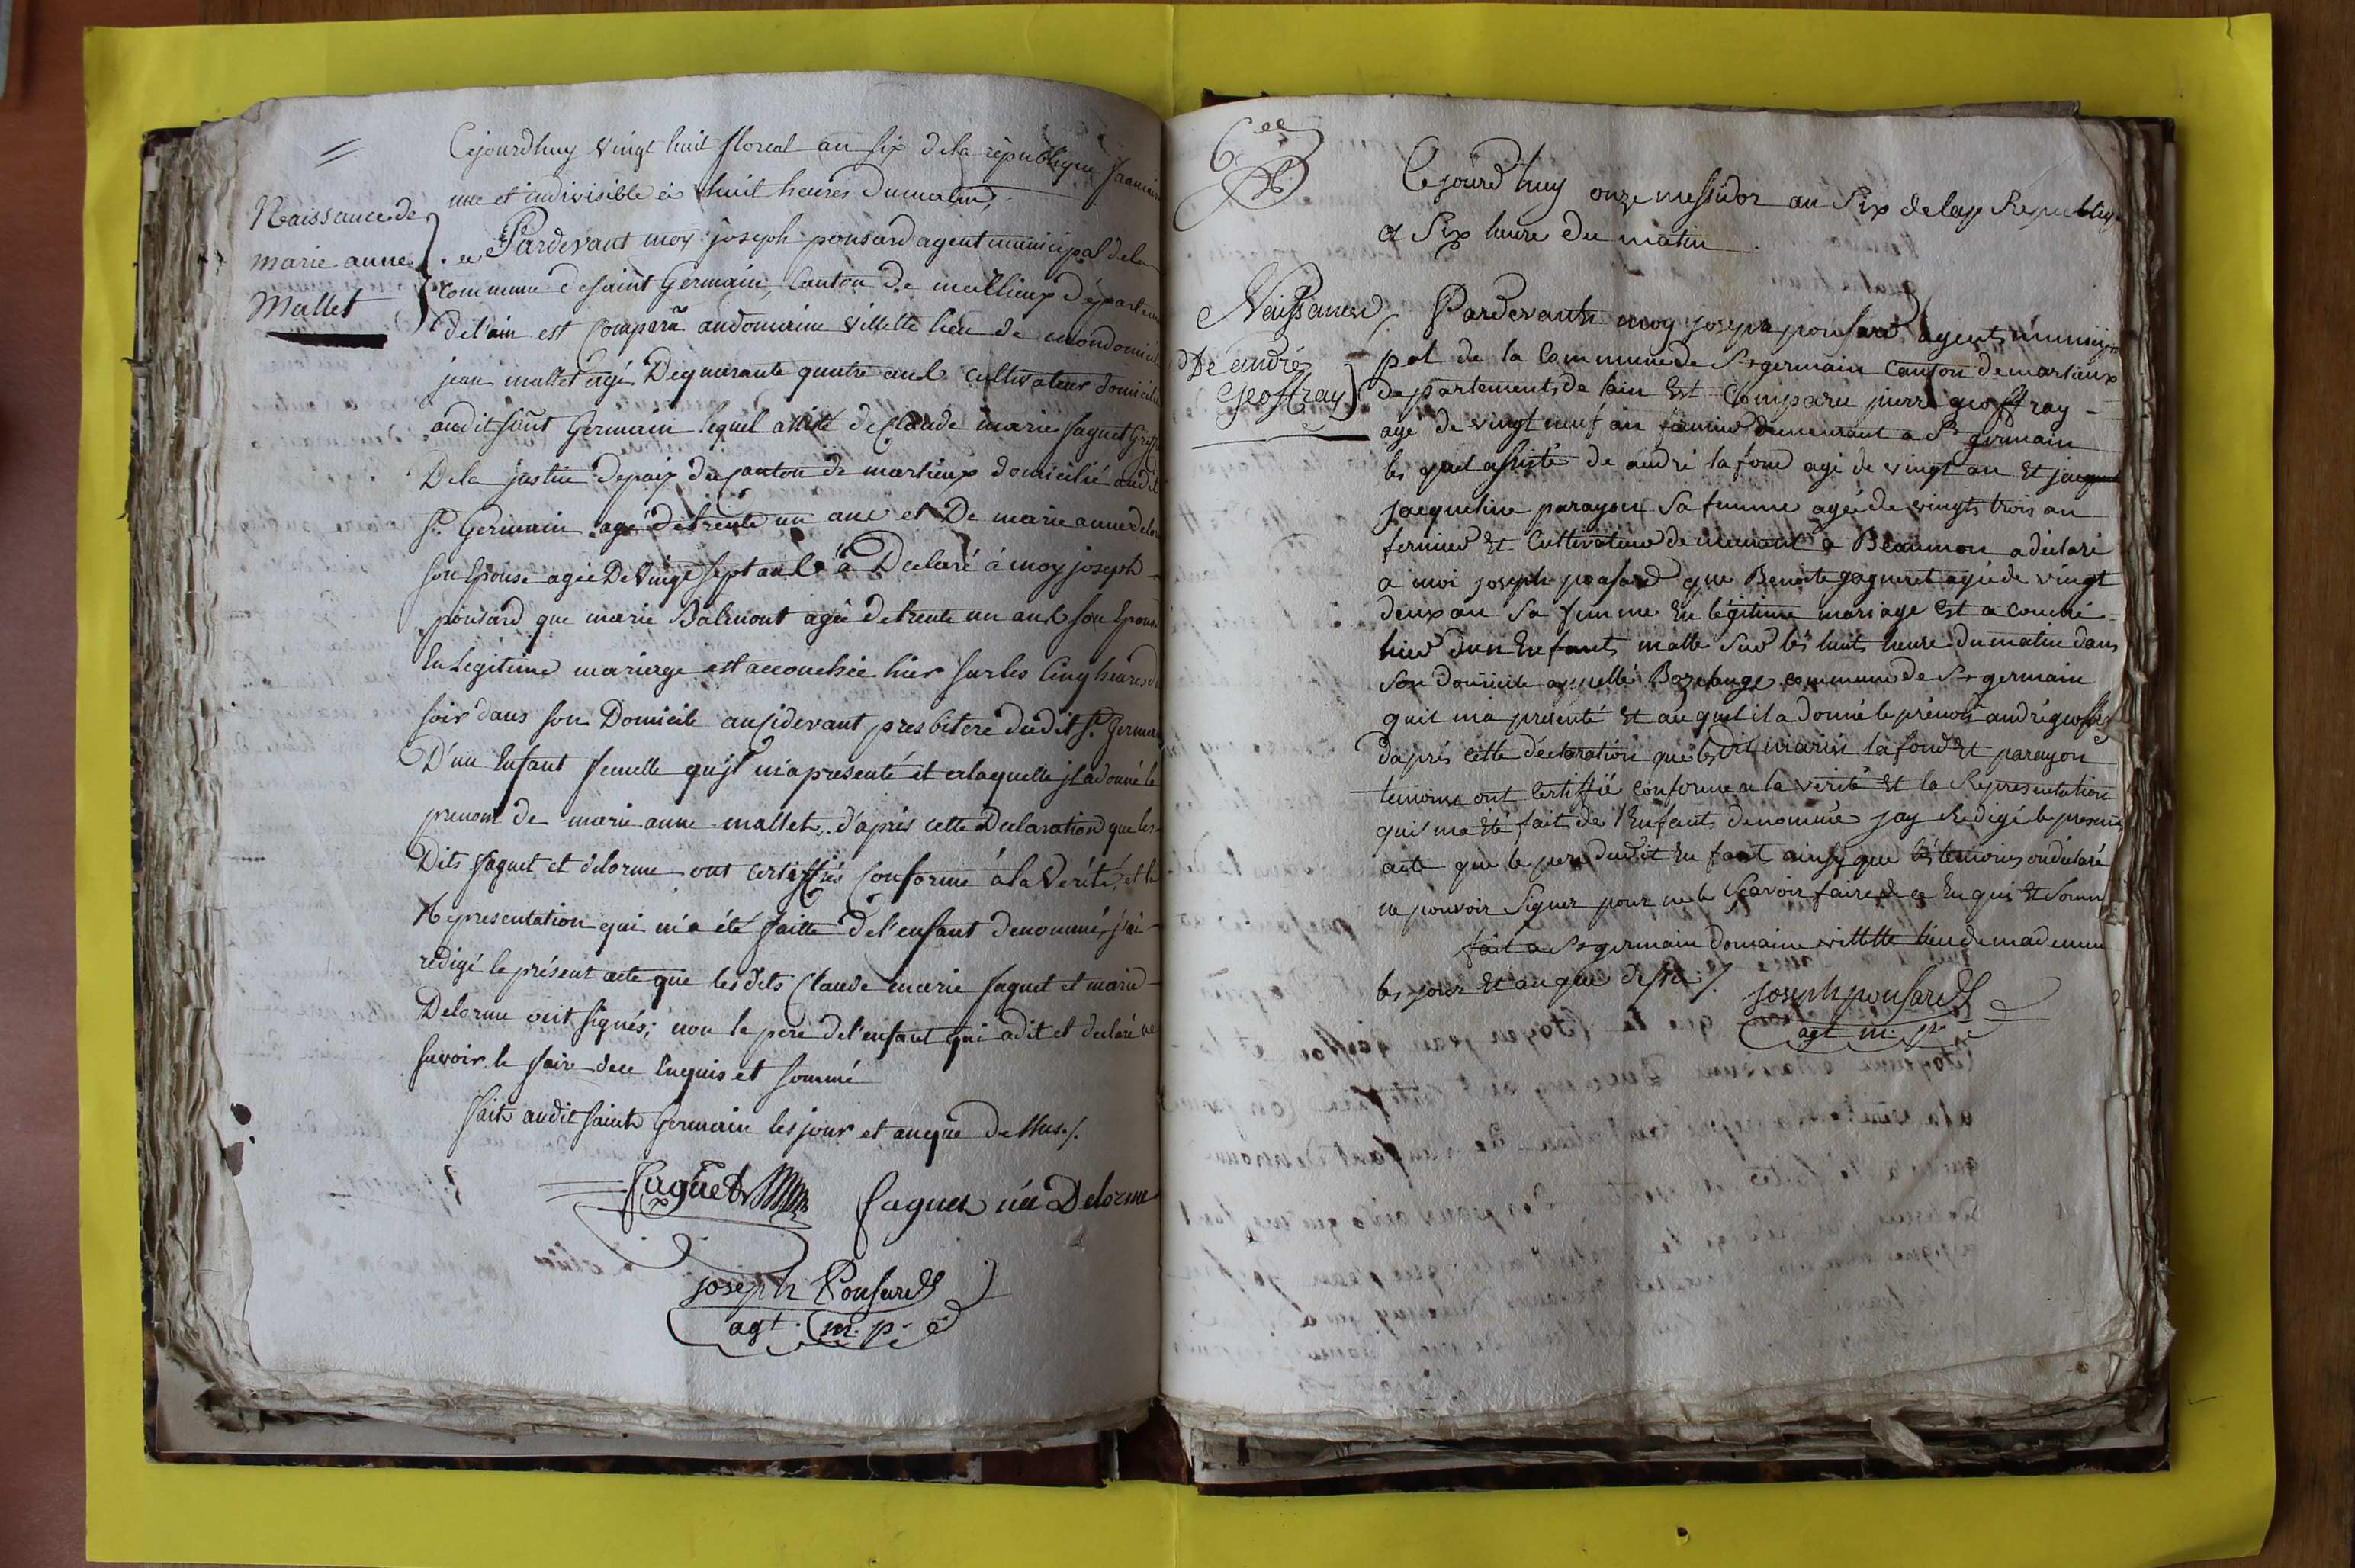 Cejourdhuy vingt huit floreal an six dela republique
une et indivisible à huit heures du matin,
Naissance de
marie anne
Mallet
Pardevant moy joseph ponsard agent municipal dela
commune de saint Germain, Canton de marlieux départem
del'ain est comparu audomaine villette lieu de mondomicile
jean mallet agé Dequarante quatre ans cultivateur domicilié
audit saint Germain lequel assisté de Claude marie faguet
Dela justice depaix du canton de marlieux domicilié audit
St. Germain agé detrente un ans et De marie anne delorme
son Epouse agée De vingt sept ans à Declaré à moy joseph
ponsard que marie Balmont agée detrente un ans son Epouse
En Legitime mariage est accouchée hier sur les Cinq heures du
soir dans son Domicile aucidevant presbitere dudit St. Germain
D'un Enfant femelle qu'jl m'apresenté et alaquelle jl adonné le
prenom de marie anne mallet, d'après cette Declaration que les
Dits faguet et delorme ont certiffiés Conforme à la Vérité, et la
Representation qui m'a été faitte del'enfant denommé, j'ai
redigé le présent acte que les dits Claude marie faguet et marie
Delorme ont signés; non le pere del'enfant qui adit et declaré ne
savoir le fair dece Enquis et sommé
fait audit saint Germain les jour et anque dessus ./.
faguet faguet née Delorme
joseph Ponsard
agt. m. p.
6ee
Cejourd huy onze messidor an Six delay Republiq
a Six heure du matin
Naissance
De andré
Geoffray
Pardevant moy joseph ponsard agent munici
pal de la Commune de St germain Canton demarlieux
departements de lain Est Comparu pierre geoffray
agé de vingt neuf an fermier demeurant a St germain
les quel assisté de andré lafond agé de vingt an Et
jacqueline parayon Sa femme agée de vingt trois an
fermier Et Cultivateur demeurant a Beaumon a déclaré
a moi joseph ponsard que Benoite gagneret agée de vingt
deux an Sa femme En légitime mariage est a couché
hier dun Enfant malle Sur les huit heure du matin dans
Son domicile appellé Bozchange commune de St germain
quil ma presenté Et au quel il a donné le prénom andré geoffray
daprés cette déclaration que lesdit lafond Et parayon
temoins ont Certiffié conforme a la verité Et la Representation
qui ma Eté fait de l'Enfant denommé jay Redigé le present
acte que le pere dudit En fant ainsy que les temoins ondeclaré
ne pouvoir Signer pour ne le Scavoir faire de ce En quis Et Somm
fait a St germain domaine villette lieu de mademeu
les jour Et an que dessus ./.
joseph ponsard
agt m. pl